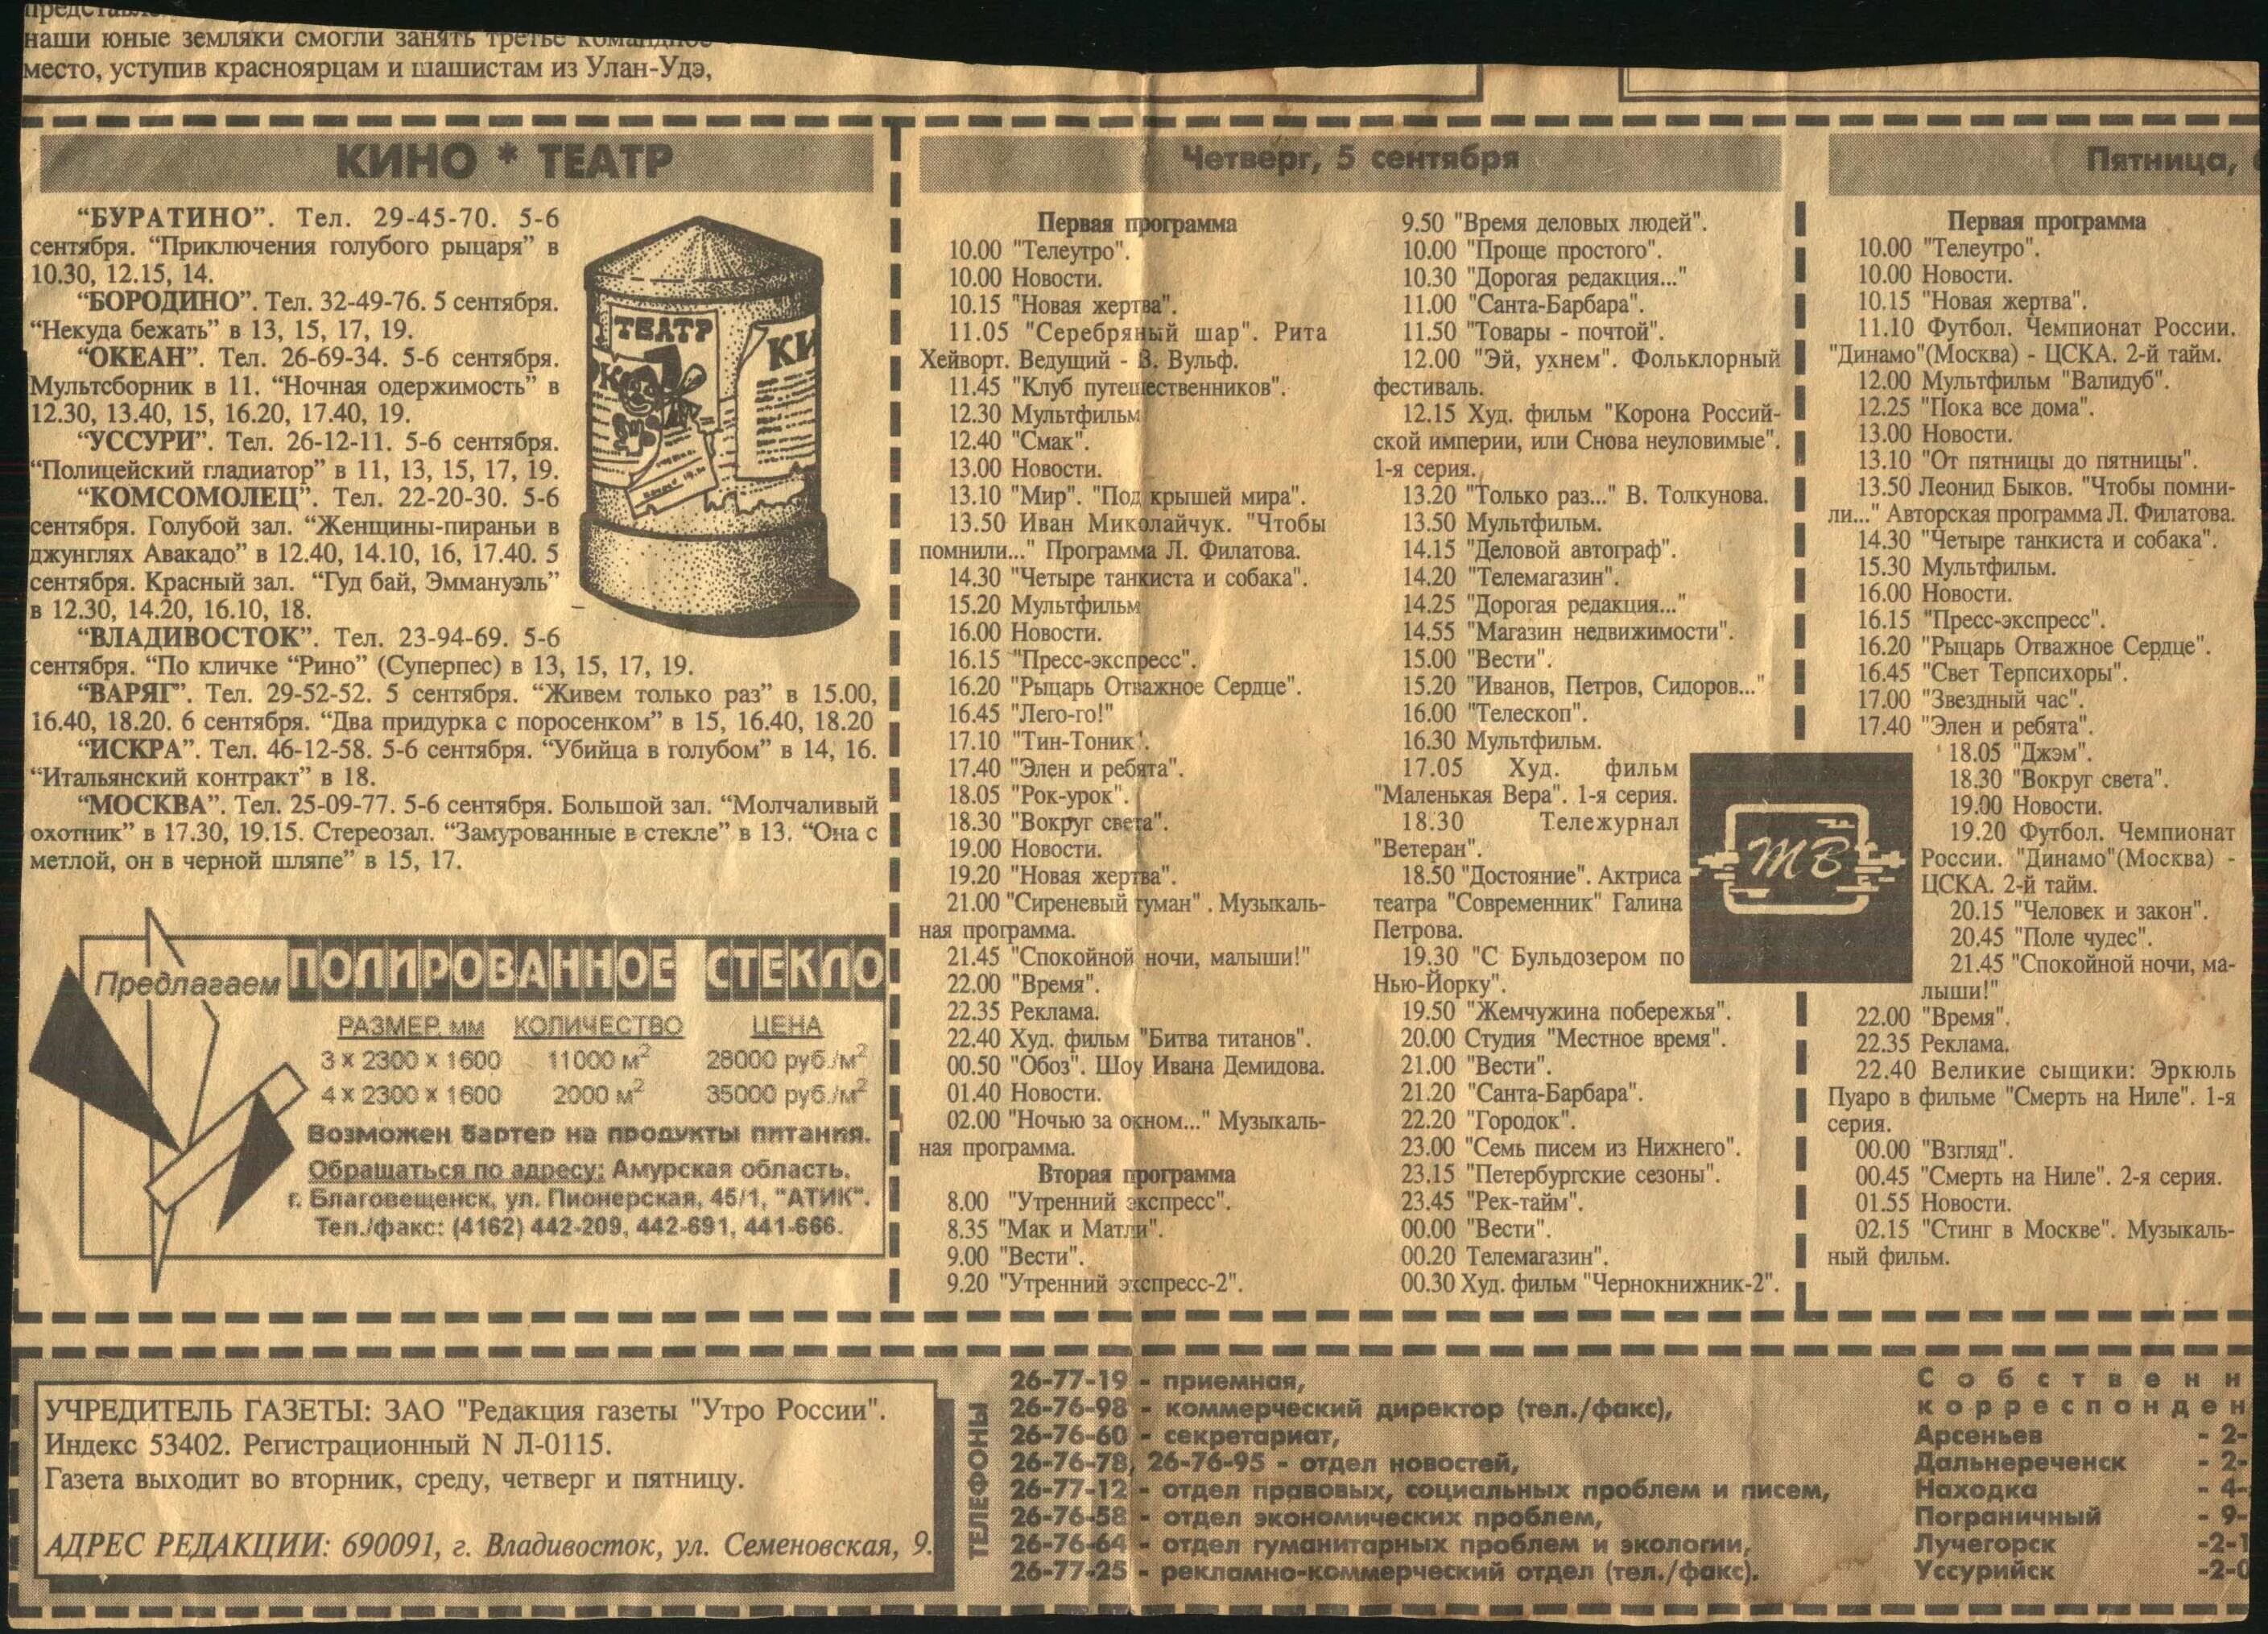 наши юные земляки смогли занять третье командное
место, уступив красноярцам и шашистам из Улан-Удэ,
КИНО * ТЕАТР
“БУРАТИНО”. Тел. 29-45-70. 5-6
сентября. “Приключения голубого рыцаря” в
10.30, 12.15, 14.
“БОРОДИНО”. Тел. 32-49-76. 5 сентября.
“Некуда бежать” в 13, 15, 17, 19.
“ОКЕАН”. Тел. 26-69-34. 5-6 сентября.
Мультсборник в 11. “Ночная одержимость” в
12.30, 13.40, 15, 16.20, 17.40, 19.
“УССУРИ”. Тел. 26-12-11. 5-6 сентября.
“Полицейский гладиатор” в 11, 13, 15, 17, 19.
“КОМСОМОЛЕЦ”. Тел. 22-20-30. 5-6
сентября. Голубой зал. “Женщины-пираньи в
джунглях Авакадо” в 12.40, 14.10, 16, 17.40. 5
сентября. Красный зал. “Гуд бай, Эммануэль”
в 12.30, 14.20, 16.10, 18.
“ВЛАДИВОСТОК”. Тел. 23-94-69. 5-6
сентября. “По кличке “Рино” (Суперпес) в 13, 15, 17, 19.
“ВАРЯГ”. Тел. 29-52-52. 5 сентября. “Живем только раз” в 15.00,
16.40, 18.20. 6 сентября. “Два придурка с поросенком” в 15, 16.40, 18.20
“ИСКРА”. Тел. 46-12-58. 5-6 сентября. “Убийца в голубом” в 14, 16.
“Итальянский контракт” в 18.
“МОСКВА”. Тел. 25-09-77. 5-6 сентября. Большой зал. “Молчаливый
охотник” в 17.30, 19.15. Стереозал. “Замурованные в стекле” в 13. “Она с
метлой, он в черной шляпе” в 15, 17.
ТЕАТР
КИ
Предлагаем ПОЛИРОВАННОЕ СТЕКЛО
РАЗМЕР, мм КОЛИЧЕСТВО ЦЕНА
3 x 2300 x 1600 11000 м² 28000 руб./м²
4 x 2300 x 1600 2000 м² 35000 руб./м²
Возможен бартер на продукты питания.
Обращаться по адресу: Амурская область,
г. Благовещенск, ул. Пионерская, 45/1, "АТИК".
Тел./факс: (4162) 442-209, 442-691, 441-666.
Четверг, 5 сентября
Первая программа
10.00 "Телеутро".
10.00 Новости.
10.15 "Новая жертва".
11.05 "Серебряный шар". Рита
Хейворт. Ведущий - В. Вульф.
11.45 "Клуб путешественников".
12.30 Мультфильм
12.40 "Смак".
13.00 Новости.
13.10 "Мир". "Под крышей мира".
13.50 Иван Миколайчук. "Чтобы
помнили..." Программа Л. Филатова.
14.30 "Четыре танкиста и собака".
15.20 Мультфильм
16.00 Новости.
16.15 "Пресс-экспресс".
16.20 "Рыцарь Отважное Сердце".
16.45 "Лего-го!"
17.10 "Тин-Тоник".
17.40 "Элен и ребята".
18.05 "Рок-урок".
18.30 "Вокруг света".
19.00 Новости.
19.20 "Новая жертва".
21.00 "Сиреневый туман" . Музыкаль-
ная программа.
21.45 "Спокойной ночи, малыши!"
22.00 "Время".
22.35 Реклама.
22.40 Худ. фильм "Битва титанов".
00.50 "Обоз". Шоу Ивана Демидова.
01.40 Новости.
02.00 "Ночью за окном..." Музыкаль-
ная программа.
Вторая программа
8.00 "Утренний экспресс".
8.35 "Мак и Матли".
9.00 "Вести".
9.20 "Утренний экспресс-2".
9.50 "Время деловых людей".
10.00 "Проще простого".
10.30 "Дорогая редакция..."
11.00 "Санта-Барбара".
11.50 "Товары - почтой".
12.00 "Эй, ухнем". Фольклорный
фестиваль.
12.15 Худ. фильм "Корона Россий-
ской империи, или Снова неуловимые".
1-я серия.
13.20 "Только раз..." В. Толкунова.
13.50 Мультфильм.
14.15 "Деловой автограф".
14.20 "Телемагазин".
14.25 "Дорогая редакция..."
14.55 "Магазин недвижимости".
15.00 "Вести".
15.20 "Иванов, Петров, Сидоров..."
16.00 "Телескоп".
16.30 Мультфильм.
17.05 Худ. фильм
"Маленькая Вера". 1-я серия.
18.30 Тележурнал
"Ветеран".
18.50 "Достояние". Актриса
театра "Современник" Галина
Петрова.
19.30 "С Бульдозером по
Нью-Йорку".
19.50 "Жемчужина побережья".
20.00 Студия "Местное время".
21.00 "Вести".
21.20 "Санта-Барбара".
22.20 "Городок".
23.00 "Семь писем из Нижнего".
23.15 "Петербургские сезоны".
23.45 "Рек-тайм".
00.00 "Вести".
00.20 Телемагазин".
00.30 Худ. фильм "Чернокнижник-2".
ТВ
Пятница,
Первая программа
10.00 "Телеутро".
10.00 Новости.
10.15 "Новая жертва".
11.10 Футбол. Чемпионат России.
"Динамо"(Москва) - ЦСКА. 2-й тайм.
12.00 Мультфильм "Валидуб".
12.25 "Пока все дома".
13.00 Новости.
13.10 "От пятницы до пятницы".
13.50 Леонид Быков. "Чтобы помни-
ли..." Авторская программа Л. Филатова.
14.30 "Четыре танкиста и собака".
15.30 Мультфильм.
16.00 Новости.
16.15 "Пресс-экспресс".
16.20 "Рыцарь Отважное Сердце".
16.45 "Свет Терпсихоры".
17.00 "Звездный час".
17.40 "Элен и ребята".
18.05 "Джэм".
18.30 "Вокруг света".
19.00 Новости.
19.20 Футбол. Чемпионат
России. "Динамо"(Москва) -
ЦСКА. 2-й тайм.
20.15 "Человек и закон".
20.45 "Поле чудес".
21.45 "Спокойной ночи, ма-
лыши!"
22.00 "Время".
22.35 Реклама.
22.40 Великие сыщики: Эркюль
Пуаро в фильме "Смерть на Ниле". 1-я
серия.
00.00 "Взгляд".
00.45 "Смерть на Ниле". 2-я серия.
01.55 Новости.
02.15 "Стинг в Москве". Музыкаль-
ный фильм.
УЧРЕДИТЕЛЬ ГАЗЕТЫ: ЗАО "Редакция газеты "Утро России".
Индекс 53402. Регистрационный N Л-0115.
Газета выходит во вторник, среду, четверг и пятницу.
АДРЕС РЕДАКЦИИ: 690091, г. Владивосток, ул. Семеновская, 9.
ТЕЛЕФОНЫ
26-77-19 - приемная,
26-76-98 - коммерческий директор (тел./факс),
26-76-60 - секретариат,
26-76-78, 26-76-95 - отдел новостей,
26-77-12 - отдел правовых, социальных проблем и писем,
26-76-58 - отдел экономических проблем,
26-76-64 - отдел гуманитарных проблем и экологии,
26-77-25 - рекламно-коммерческий отдел (тел./факс).
Собственн
корреспонден
Арсеньев - 2-
Дальнереченск - 2-
Находка - 4-
Пограничный - 9-
Лучегорск -2-1
Уссурийск -2-0